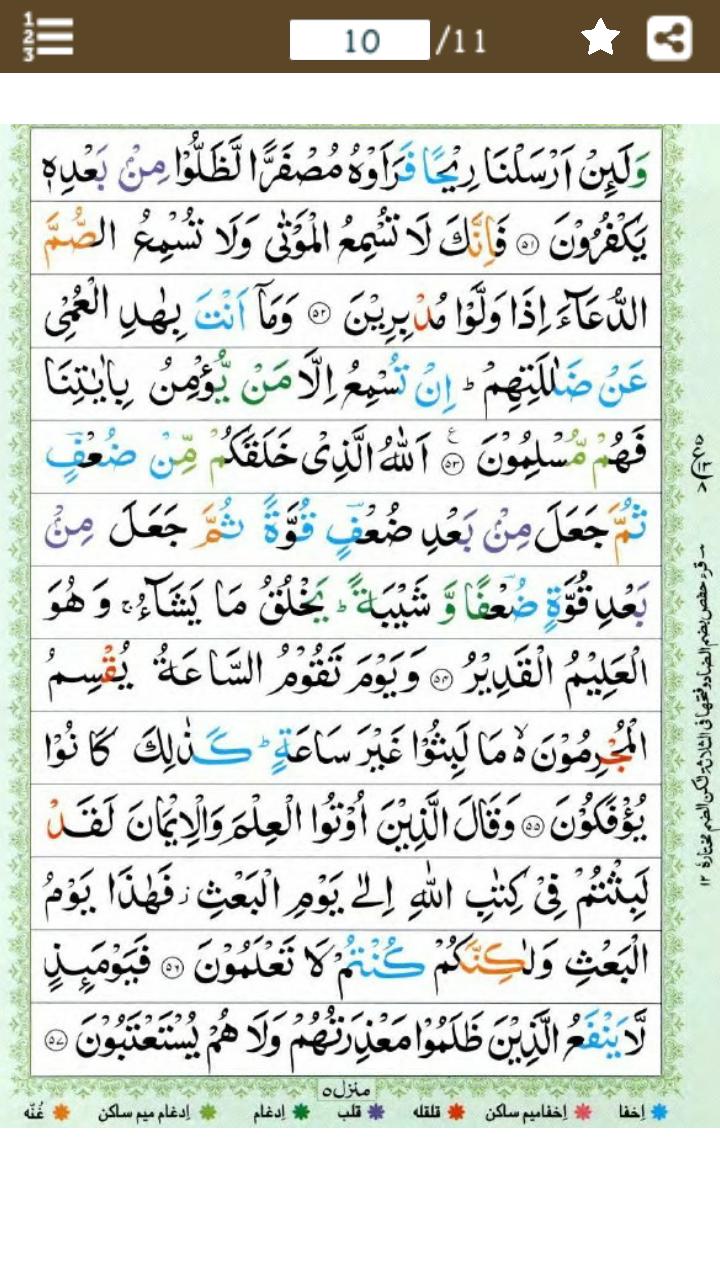 1
2
3
10 /11
وَلَىِٕنْ اَرْسَلْنَا رِيْحًا فَرَاَوْهُ مُصْفَرًّا لَّظَلُّوْا مِنْۢ بَعْدِهٖ
يَكْفُرُوْنَ ﴿۵۱﴾ فَاِنَّكَ لَا تُسْمِعُ الْمَوْتٰى وَلَا تُسْمِعُ الصُّمَّ
الدُّعَآءَ اِذَا وَلَّوْا مُدْبِرِيْنَ ﴿۵۲﴾ وَمَاۤ اَنْتَ بِهٰدِ الْعُمْيِ
عَنْ ضَلٰلَتِهِمْ ؕ اِنْ تُسْمِعُ اِلَّا مَنْ يُّؤْمِنُ بِاٰيٰتِنَا
فَهُمْ مُّسْلِمُوْنَ ﴿۵۳﴾ ع اَللّٰهُ الَّذِيْ خَلَقَكُمْ مِّنْ ضُعْفٍ
ثُمَّ جَعَلَ مِنْۢ بَعْدِ ضُعْفٍ قُوَّةً ثُمَّ جَعَلَ مِنْۢ
بَعْدِ قُوَّةٍ ضُعْفًا وَّ شَيْبَةً ؕ يَخْلُقُ مَا يَشَآءُ ۚ وَ هُوَ
الْعَلِيْمُ الْقَدِيْرُ ﴿۵۴﴾ وَيَوْمَ تَقُوْمُ السَّاعَةُ يُقْسِمُ
الْمُجْرِمُوْنَ ۙ مَا لَبِثُوْا غَيْرَ سَاعَةٍ ؕ كَذٰلِكَ كَانُوْا
يُؤْفَكُوْنَ ﴿۵۵﴾ وَقَالَ الَّذِيْنَ اُوْتُوا الْعِلْمَ وَالْاِيْمَانَ لَقَدْ
لَبِثْتُمْ فِيْ كِتٰبِ اللّٰهِ اِلٰى يَوْمِ الْبَعْثِ ؗ فَهٰذَا يَوْمُ
الْبَعْثِ وَلٰكِنَّكُمْ كُنْتُمْ لَا تَعْلَمُوْنَ ﴿۵۶﴾ فَيَوْمَىِٕذٍ
لَّا يَنْفَعُ الَّذِيْنَ ظَلَمُوْا مَعْذِرَتُهُمْ وَلَا هُمْ يُسْتَعْتَبُوْنَ ﴿۵۷﴾
منزل ۵
اِخفا اِخفا میم ساکن قلقله قلب اِدغام اِدغام میم ساکن غُنّه